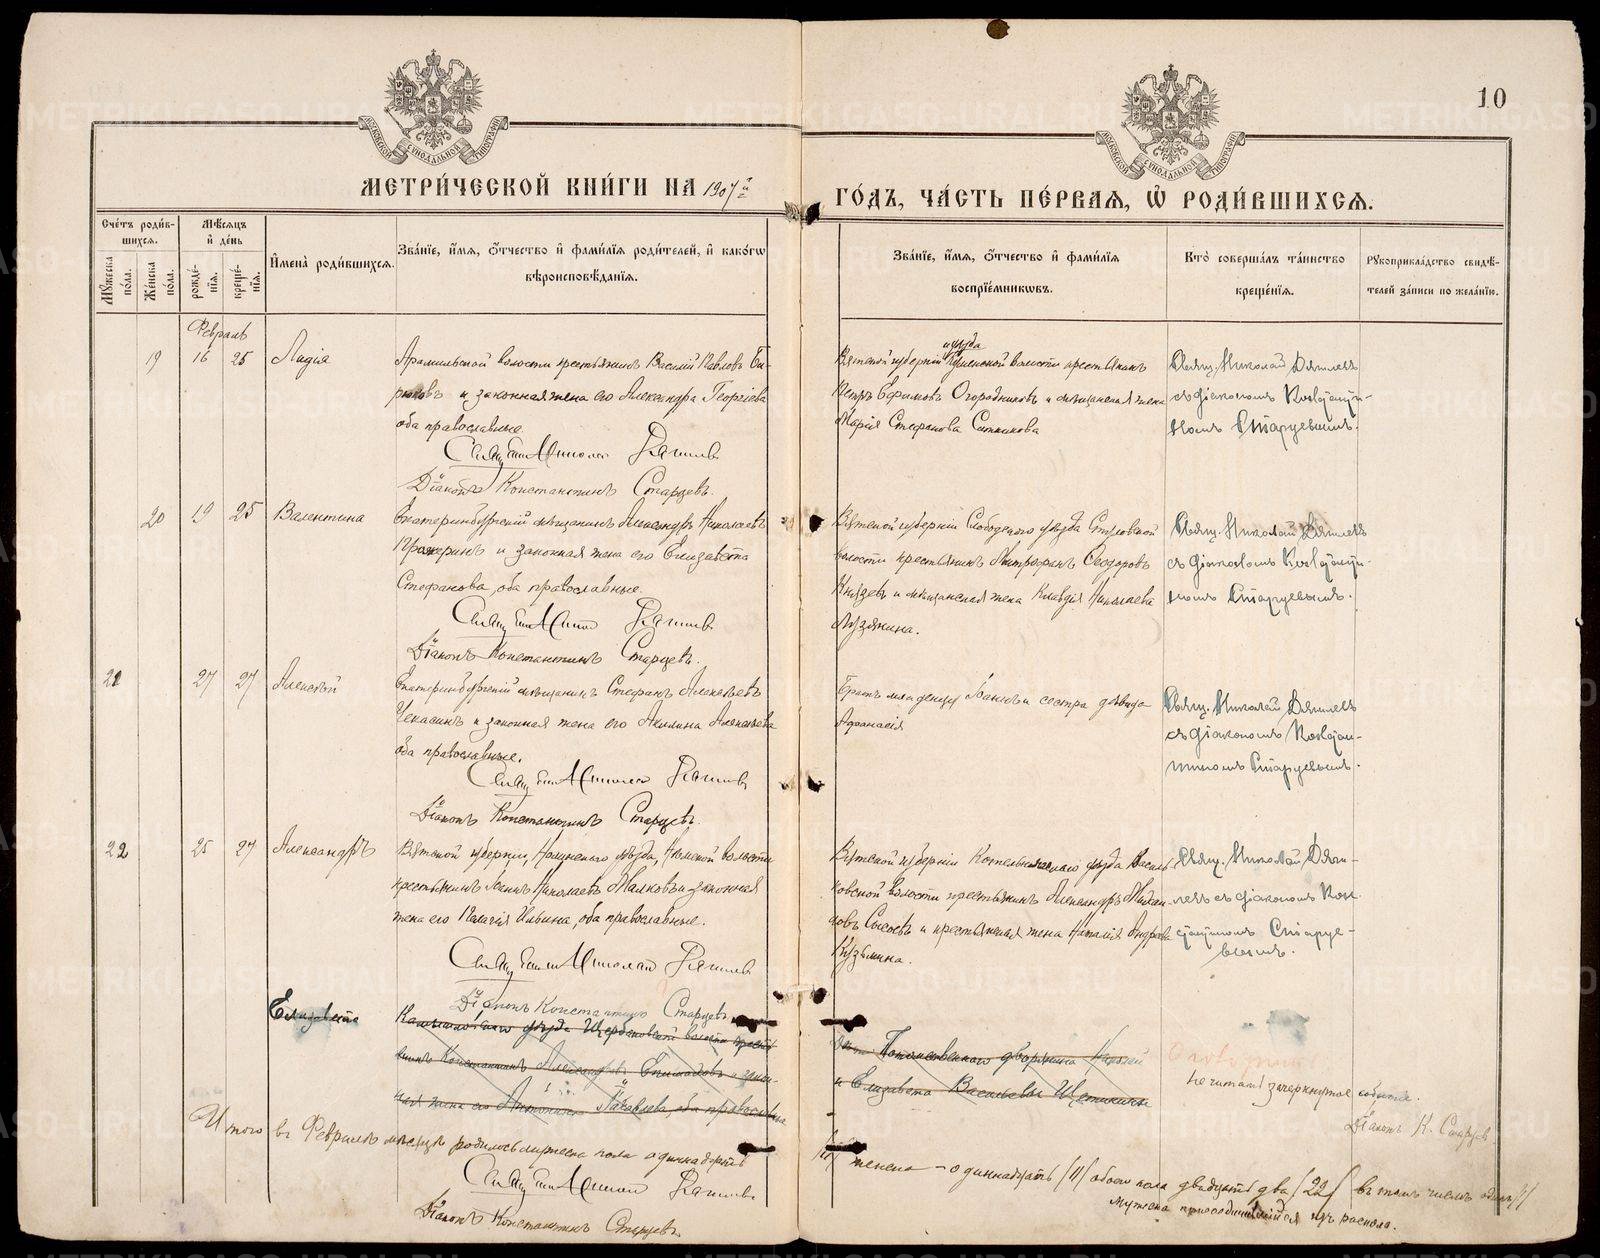 10
МЕТРИ́ЧЕСКОЙ КНИ́ГИ НА 1907 ГО́ДЪ, ЧА́СТЬ ПЕ́РВАЯ, Ѡ РОДИ́ВШИХСЯ.
Сче́тъ роди́вшихся.
Мѣ́сяцъ и де́нь
Му́жеска по́ла.
Же́нска по́ла.
рожде́нїя.
креще́нїя.
Имена̀ роди́вшихся.
Зва́нїе, и́мя, о́тчество и фами́лїя роди́телей, и како́гѡ
вѣроисповѣ́данїя.
Зва́нїе, и́мя, о́тчество и фами́лїя
воспрїе́мникѡвъ.
Кто̀ соверша́лъ та́инство
креще́нїя.
Рукоприкла́дство свидѣ́-
телей за́писи по жела́нїю.
Февраль
19 16 25 Лидія
Арамильской волости крестьянинъ Василій Павловъ Би-
рюковъ и законная жена его Александра Георгіева
оба православные.
Священникъ Николай
Діаконъ Константинъ Старцевъ.
Вятской губерніи уѣзда волости крестьянинъ
Петръ Ефимовъ Огородниковъ и мѣщанская жена
Марія Стефанова Ситникова
Свящ. Николай
съ діакономъ Константи-
номъ Старцевымъ.
20 19 25 Валентина
Екатеринбургскій мѣщанинъ Александръ Николаевъ
и законная жена его Елизавета
Стефанова, оба православные.
Священникъ Николай
Діаконъ Константинъ Старцевъ.
Вятской губерніи Слободского уѣзда
волости крестьянинъ Митрофанъ Ѳеодоровъ
Князевъ и мѣщанская жена Клавдія Николаева
Лузянина.
Свящ. Николай
съ діакономъ Константи-
номъ Старцевымъ.
21 27 27 Алексѣй
Екатеринбургскій мѣщанинъ Стефанъ Алексѣевъ
Чекасинъ и законная жена его Акилина Алексѣева
оба православные.
Священникъ Николай
Діаконъ Константинъ Старцевъ.
Братъ младенцу Іоаннъ и сестра дѣвица
Аѳанасія
Свящ. Николай
съ діакономъ Констан-
тиномъ Старцевымъ.
22 25 27 Александръ
Вятской губерніи, Нолинского уѣзда, волости
крестьянинъ Іоаннъ Николаевъ Малковъ и законная
жена его Пелагія Ильина, оба православные.
Священникъ Николай
Діаконъ Константинъ Старцевъ.
Вятской губерніи Котельническаго уѣзда
волости крестьянинъ Александръ Михаи-
ловъ Сысоевъ и крестьянская жена Наталія Андреева
Кузьмина.
Свящ. Николай
съ діакономъ Кон-
стантиномъ Старце-
вымъ.
Елизавета
Камышловскаго уѣзда волости кресть-
янинъ Константинъ и закон-
ная жена его Антонина Яковлева, оба православные
Потомственного дворянина
и Елизавета Васильева
Не читать зачеркнутое событіе.
Діаконъ К. Старцев
Итого въ Февралѣ мѣсяцѣ родилось мужеска пола одиннадцать
/11/ женска – одиннадцать /11/ обоего пола двадцать два /22/ въ томъ числѣ одинъ /1/
мужска присоединившійся изъ раскола.
Священникъ Николай
Діаконъ Константинъ Старцевъ.
METRIKI.GASO-URAL.RU